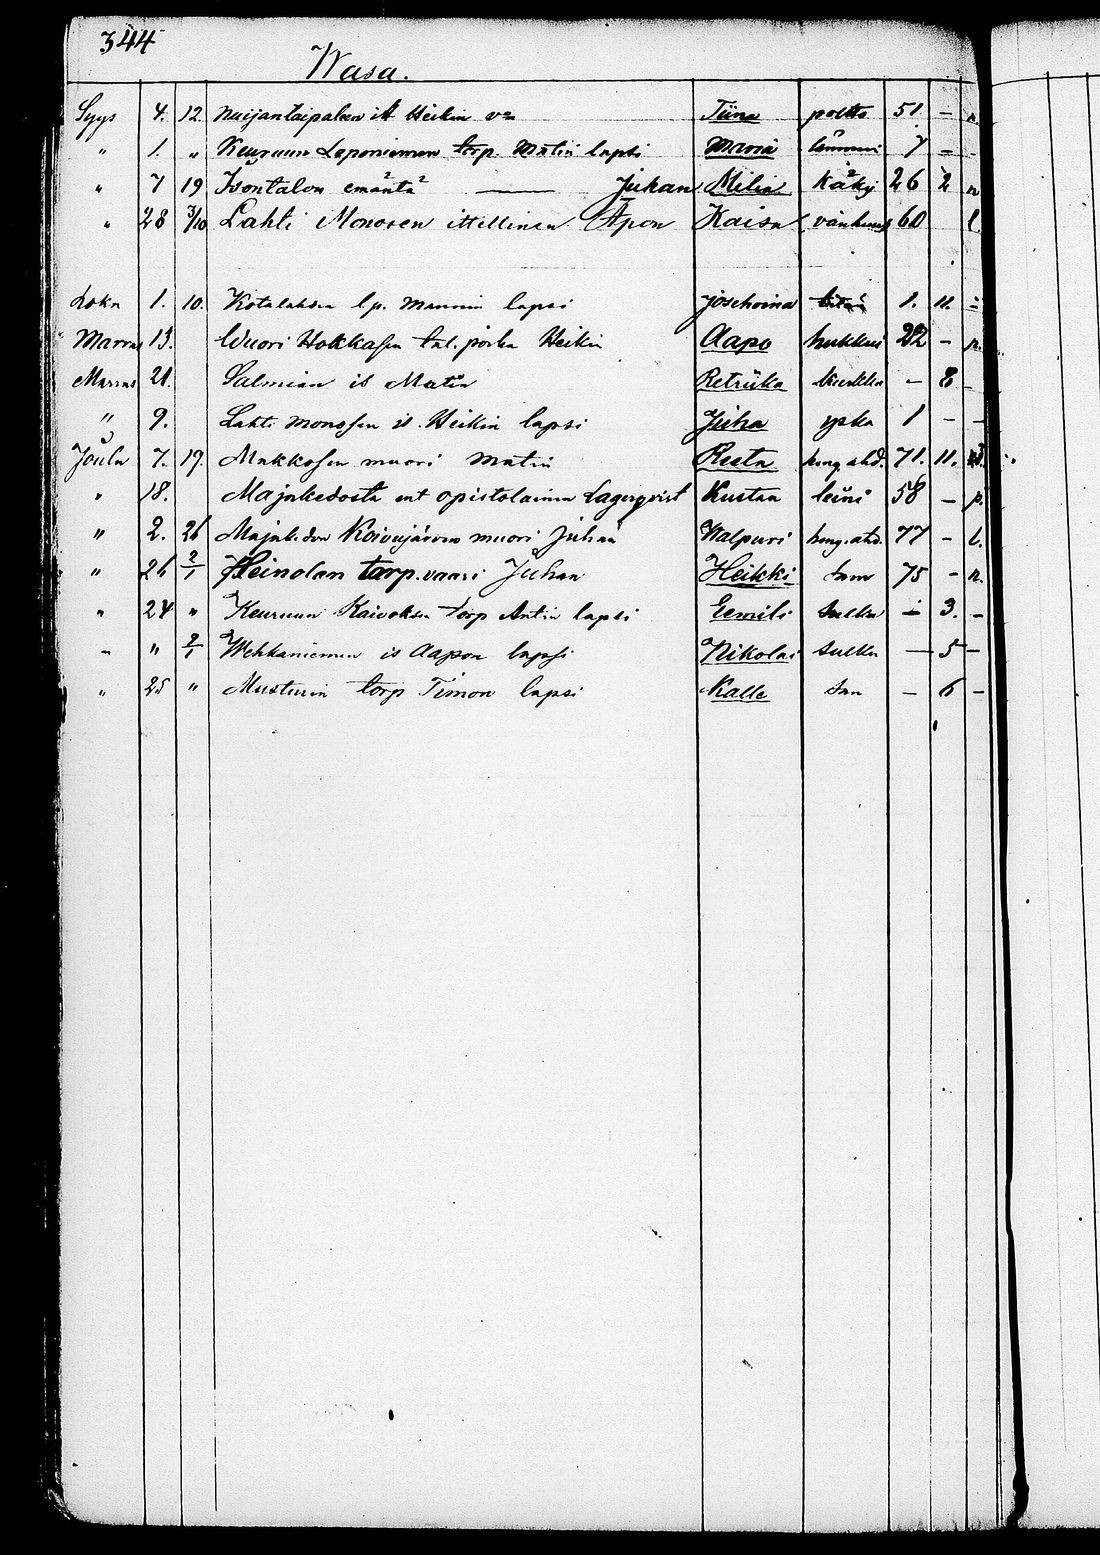 344
Wasa.
Syys 4. 12. Naijantaipaleen it Heikin Tiina poltto 51 - n.
" 1. " Keuruun Laponiemen torp. Matin lapsi Maria 7 - -
" 7 19 Isontalon emäntä — Juhan Milia Käky 26 2 n
" 28 3/10 Lahti Monosen ittellinen Apon Kaisa vanhuus 60 l.
Loka 1. 10. Kotalahden l.p. Mannin lapsi Joschoina 1. 11. -
Marras 13. Wuori Hokkasen tal. poika Heikin Aapo hukkui 22 - p.
Marras 21. Salmian it Matin Retriika kurkku - 8 -
" 9. Lahti Monosen it. Heikin lapsi Juha yskä 1 - -
Joulu 7. 19. Makkosen muori Matin Reeta heng.ahd. 71. 11.
" 18. Majakedosta ent opistolainen Lagerqvist Kustaa leini 58 - p.
" 2. 26 Majakedon Koivujärven muori Juhan Walpuri heng.ahd. 77 - l.
" 26 2/1 Heinolan torp. vaari Juhan Heikki sam 75 - n.
" 24 " Keuruun Kaivoksen torp Antin lapsi Eemili sulku - 3. -
- " 2/1 Wehkaniemen it Aapon lapsi Nikolai sulku - 5 -
" 25 " Musturin torp Timon lapsi Kalle sam - 6 -